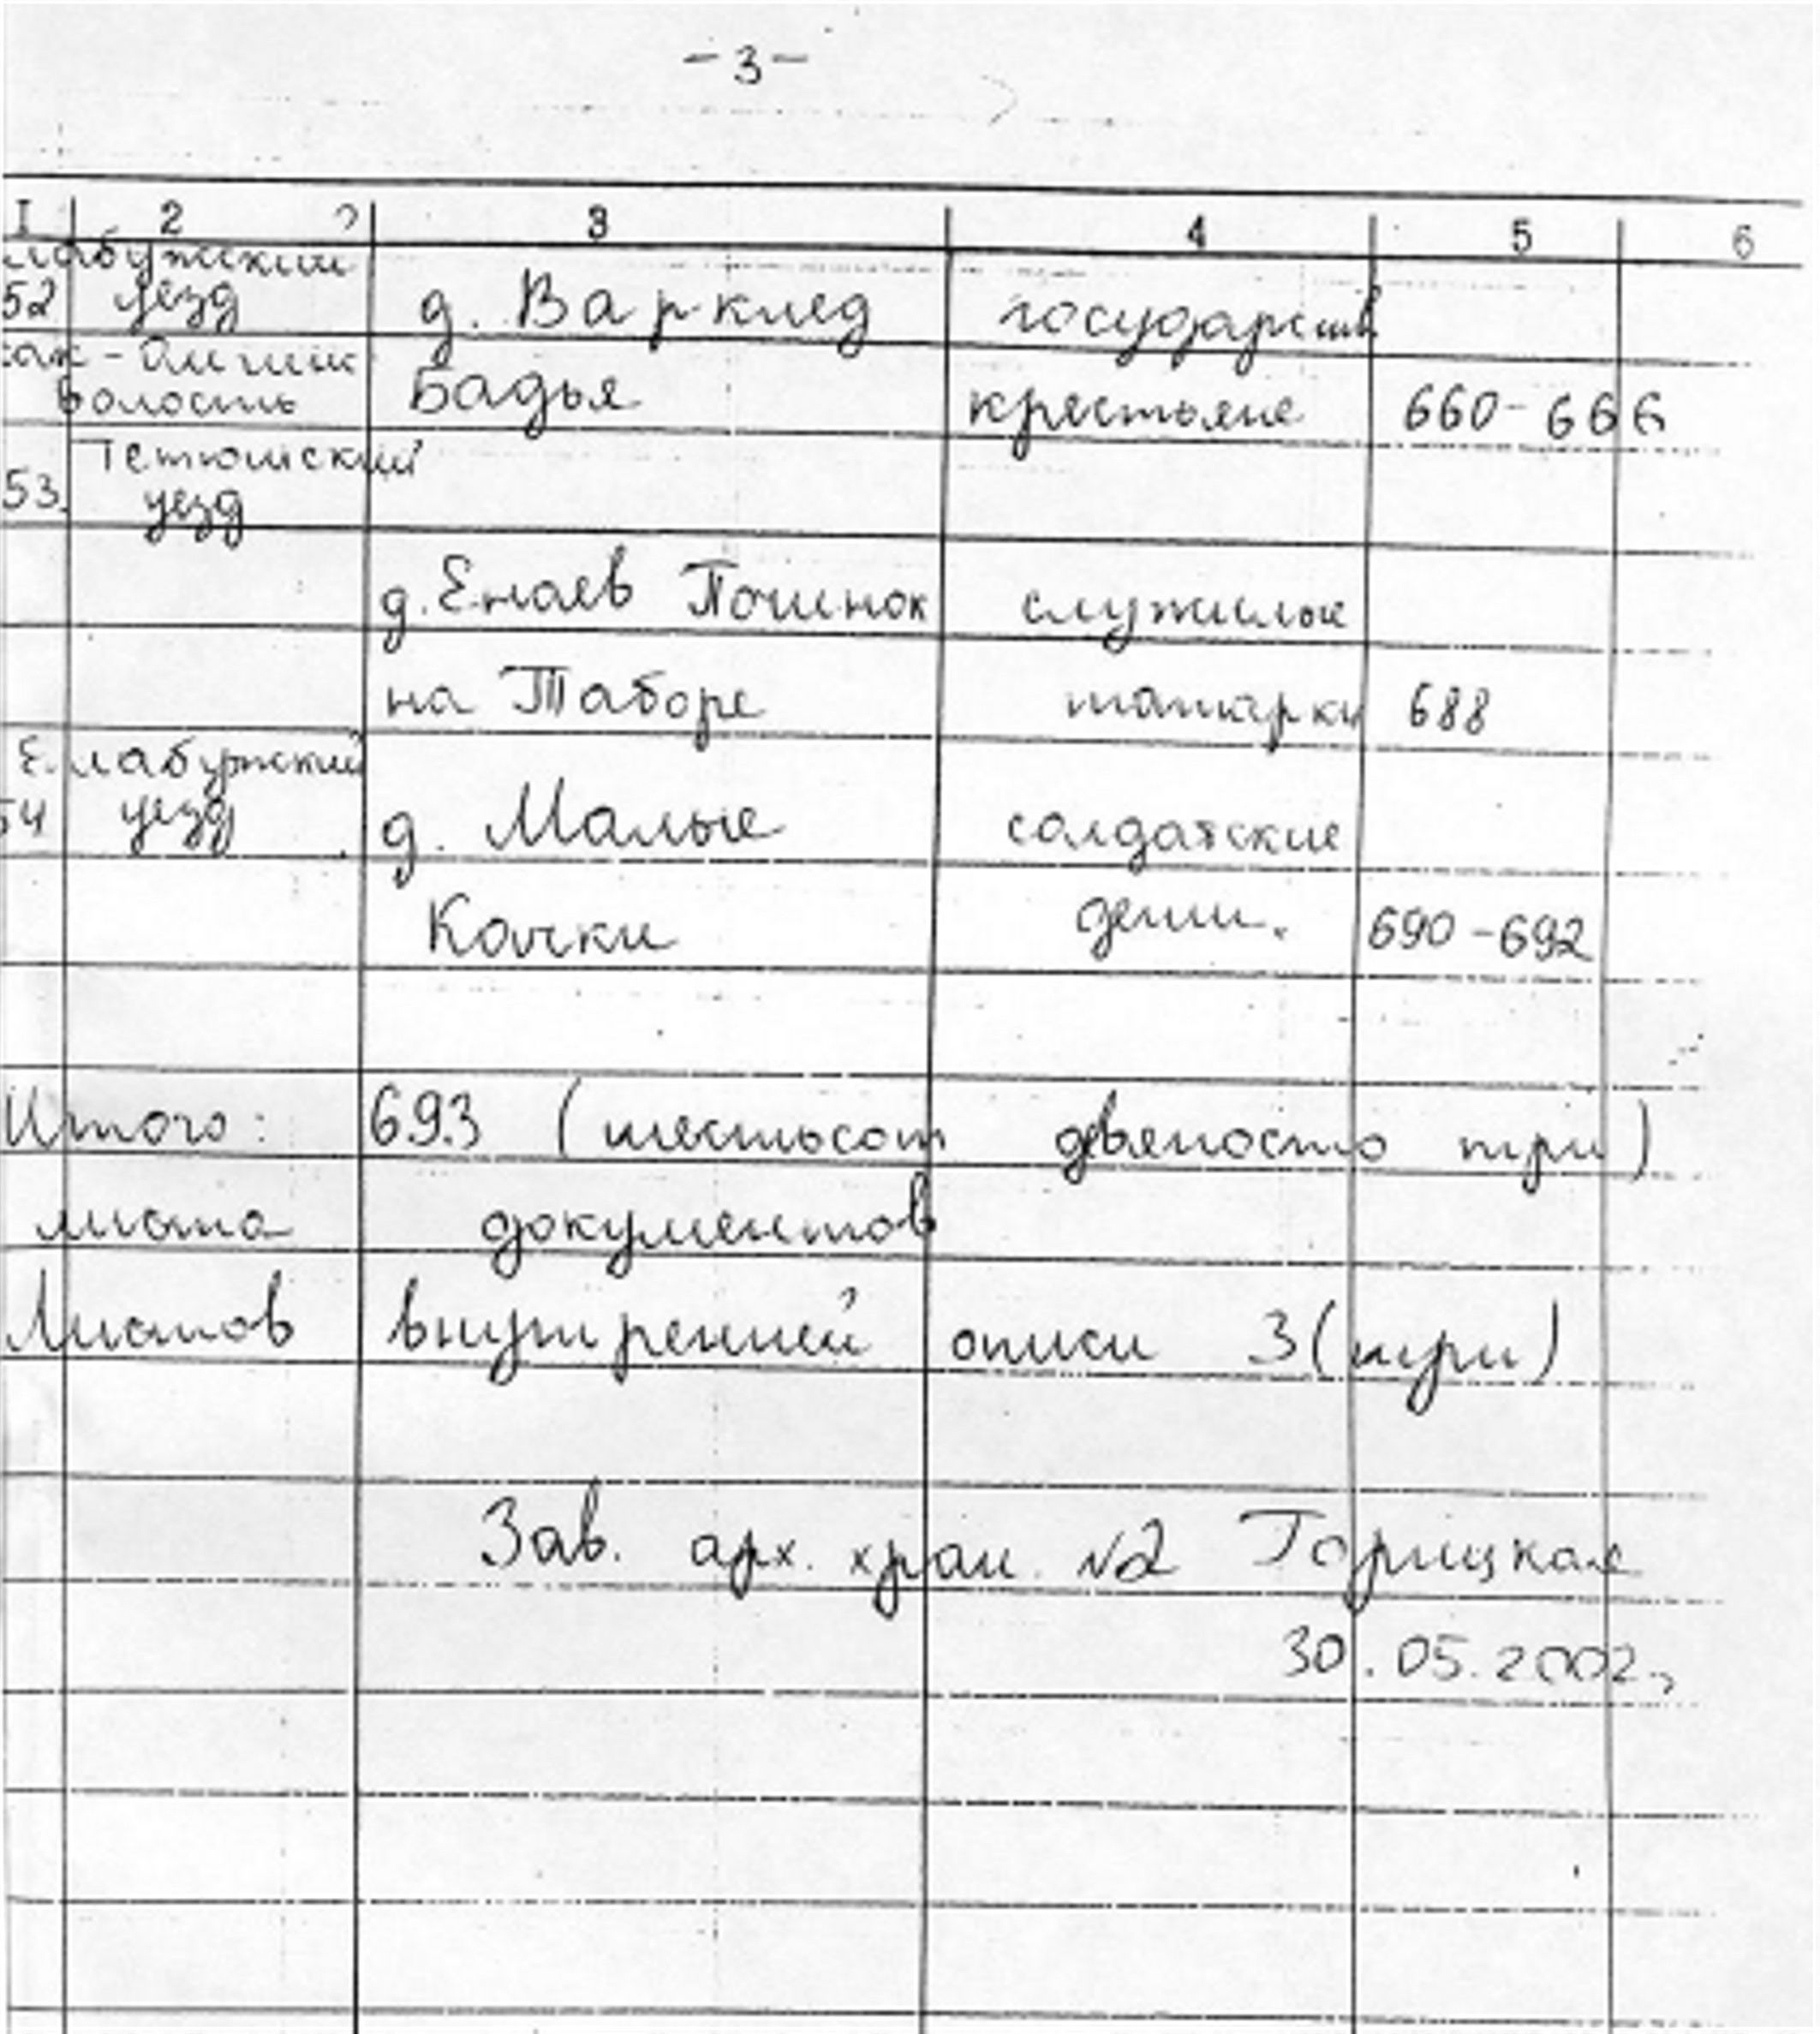 -3-
I 2 3 4 5 6
лабужский
52 уезд д. Варклед государств
волость Бадья крестьяне 660-666
Тетюшский
53. уезд
д. Енаев Починок служилые
на Таборе татарки 688
Елабужский
54 уезд д. Малые солдатские
Качки дети. 690-692
Итого: 693 (шестьсот девяносто три)
листа документов
Листов внутренней описи 3 (три)
Зав. арх. хран. №2 Горицкая
30.05.2002г